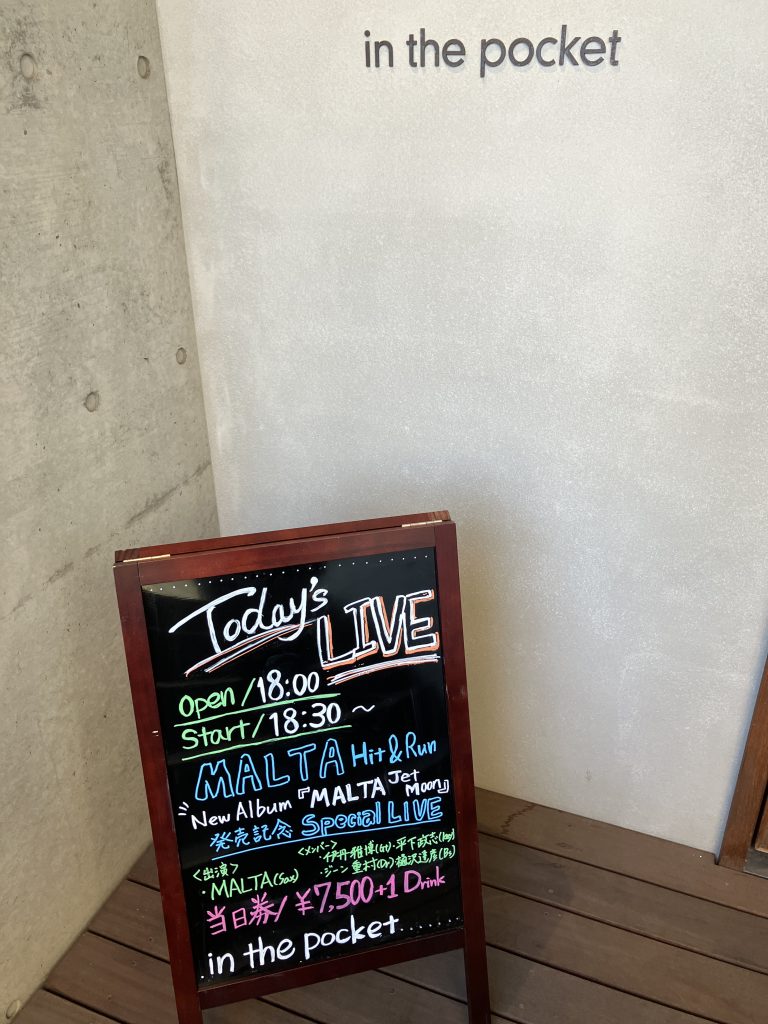 in the pocket
Today's LIVE
Open/18:00
Start/18:30〜
MALTA Hit & Run
New Album『MALTA Jet Moon』
発売記念 Special LIVE
<出演>
・MALTA(Sax)
<メンバー>
・伊丹雅博(Gt)・平下政志(key)
・ジーン重村(Dr)樋沢達彦(Bs)
当日券/¥7,500+1 Drink
in the pocket